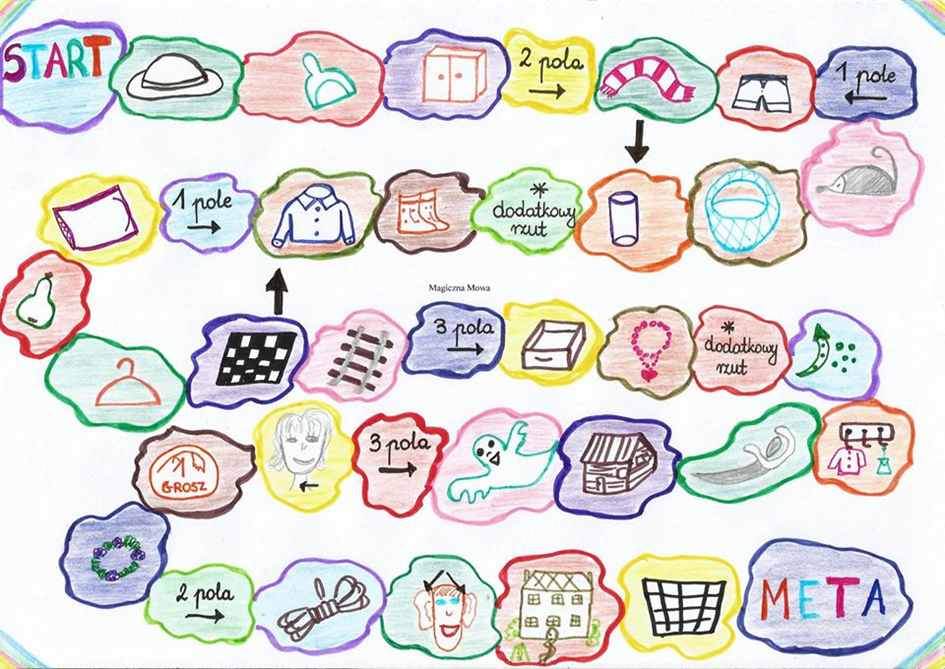 START
2 pola
1 pole
1 pole
* dodatkowy
rzut
Magiczna Mowa
3 pola
* dodatkowy
rzut
1
GROSZ
3 pola
2 pola
META